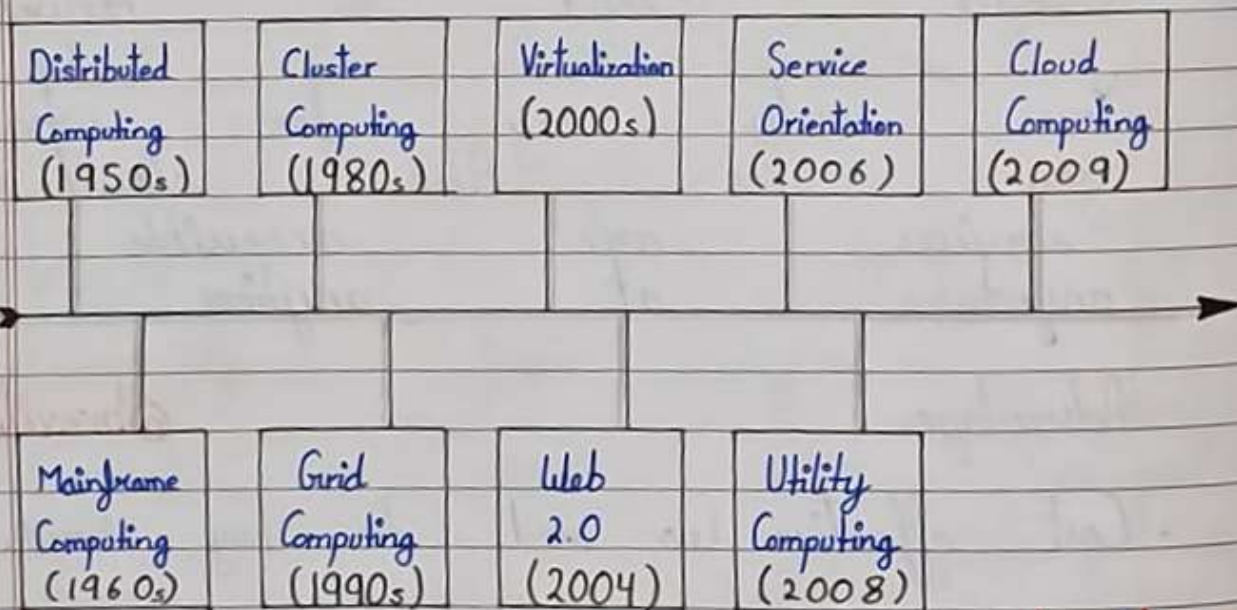 Distributed
Computing
(1950s)
Cluster
Computing
(1980s)
Virtualization
(2000s)
Service
Orientation
(2006)
Cloud
Computing
(2009)
Mainframe
Computing
(1960s)
Grid
Computing
(1990s)
Web
2.0
(2004)
Utility
Computing
(2008)